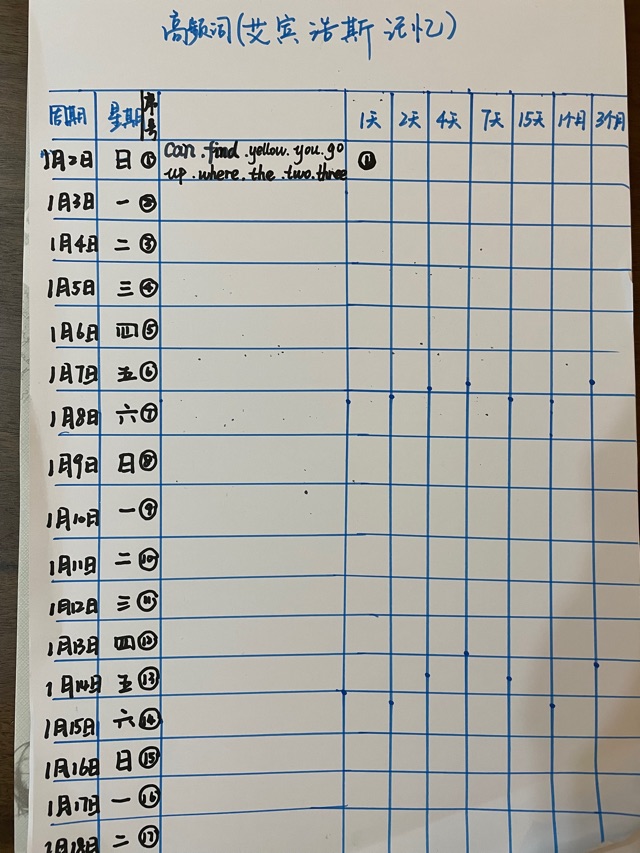 高频词(艾宾浩斯记忆)
周期 星期 序号 1天 2天 4天 7天 15天 1个月 3个月
1月2日 日 ① can.find.yellow.you.go ①
up.where.the.two.three
1月3日 一 ②
1月4日 二 ③
1月5日 三 ④
1月6日 四 ⑤
1月7日 五 ⑥
1月8日 六 ⑦
1月9日 日 ⑧
1月10日 一 ⑨
1月11日 二 ⑩
1月12日 三 ⑪
1月13日 四 ⑫
1月14日 五 ⑬
1月15日 六 ⑭
1月16日 日 ⑮
1月17日 一 ⑯
1月18日 二 ⑰